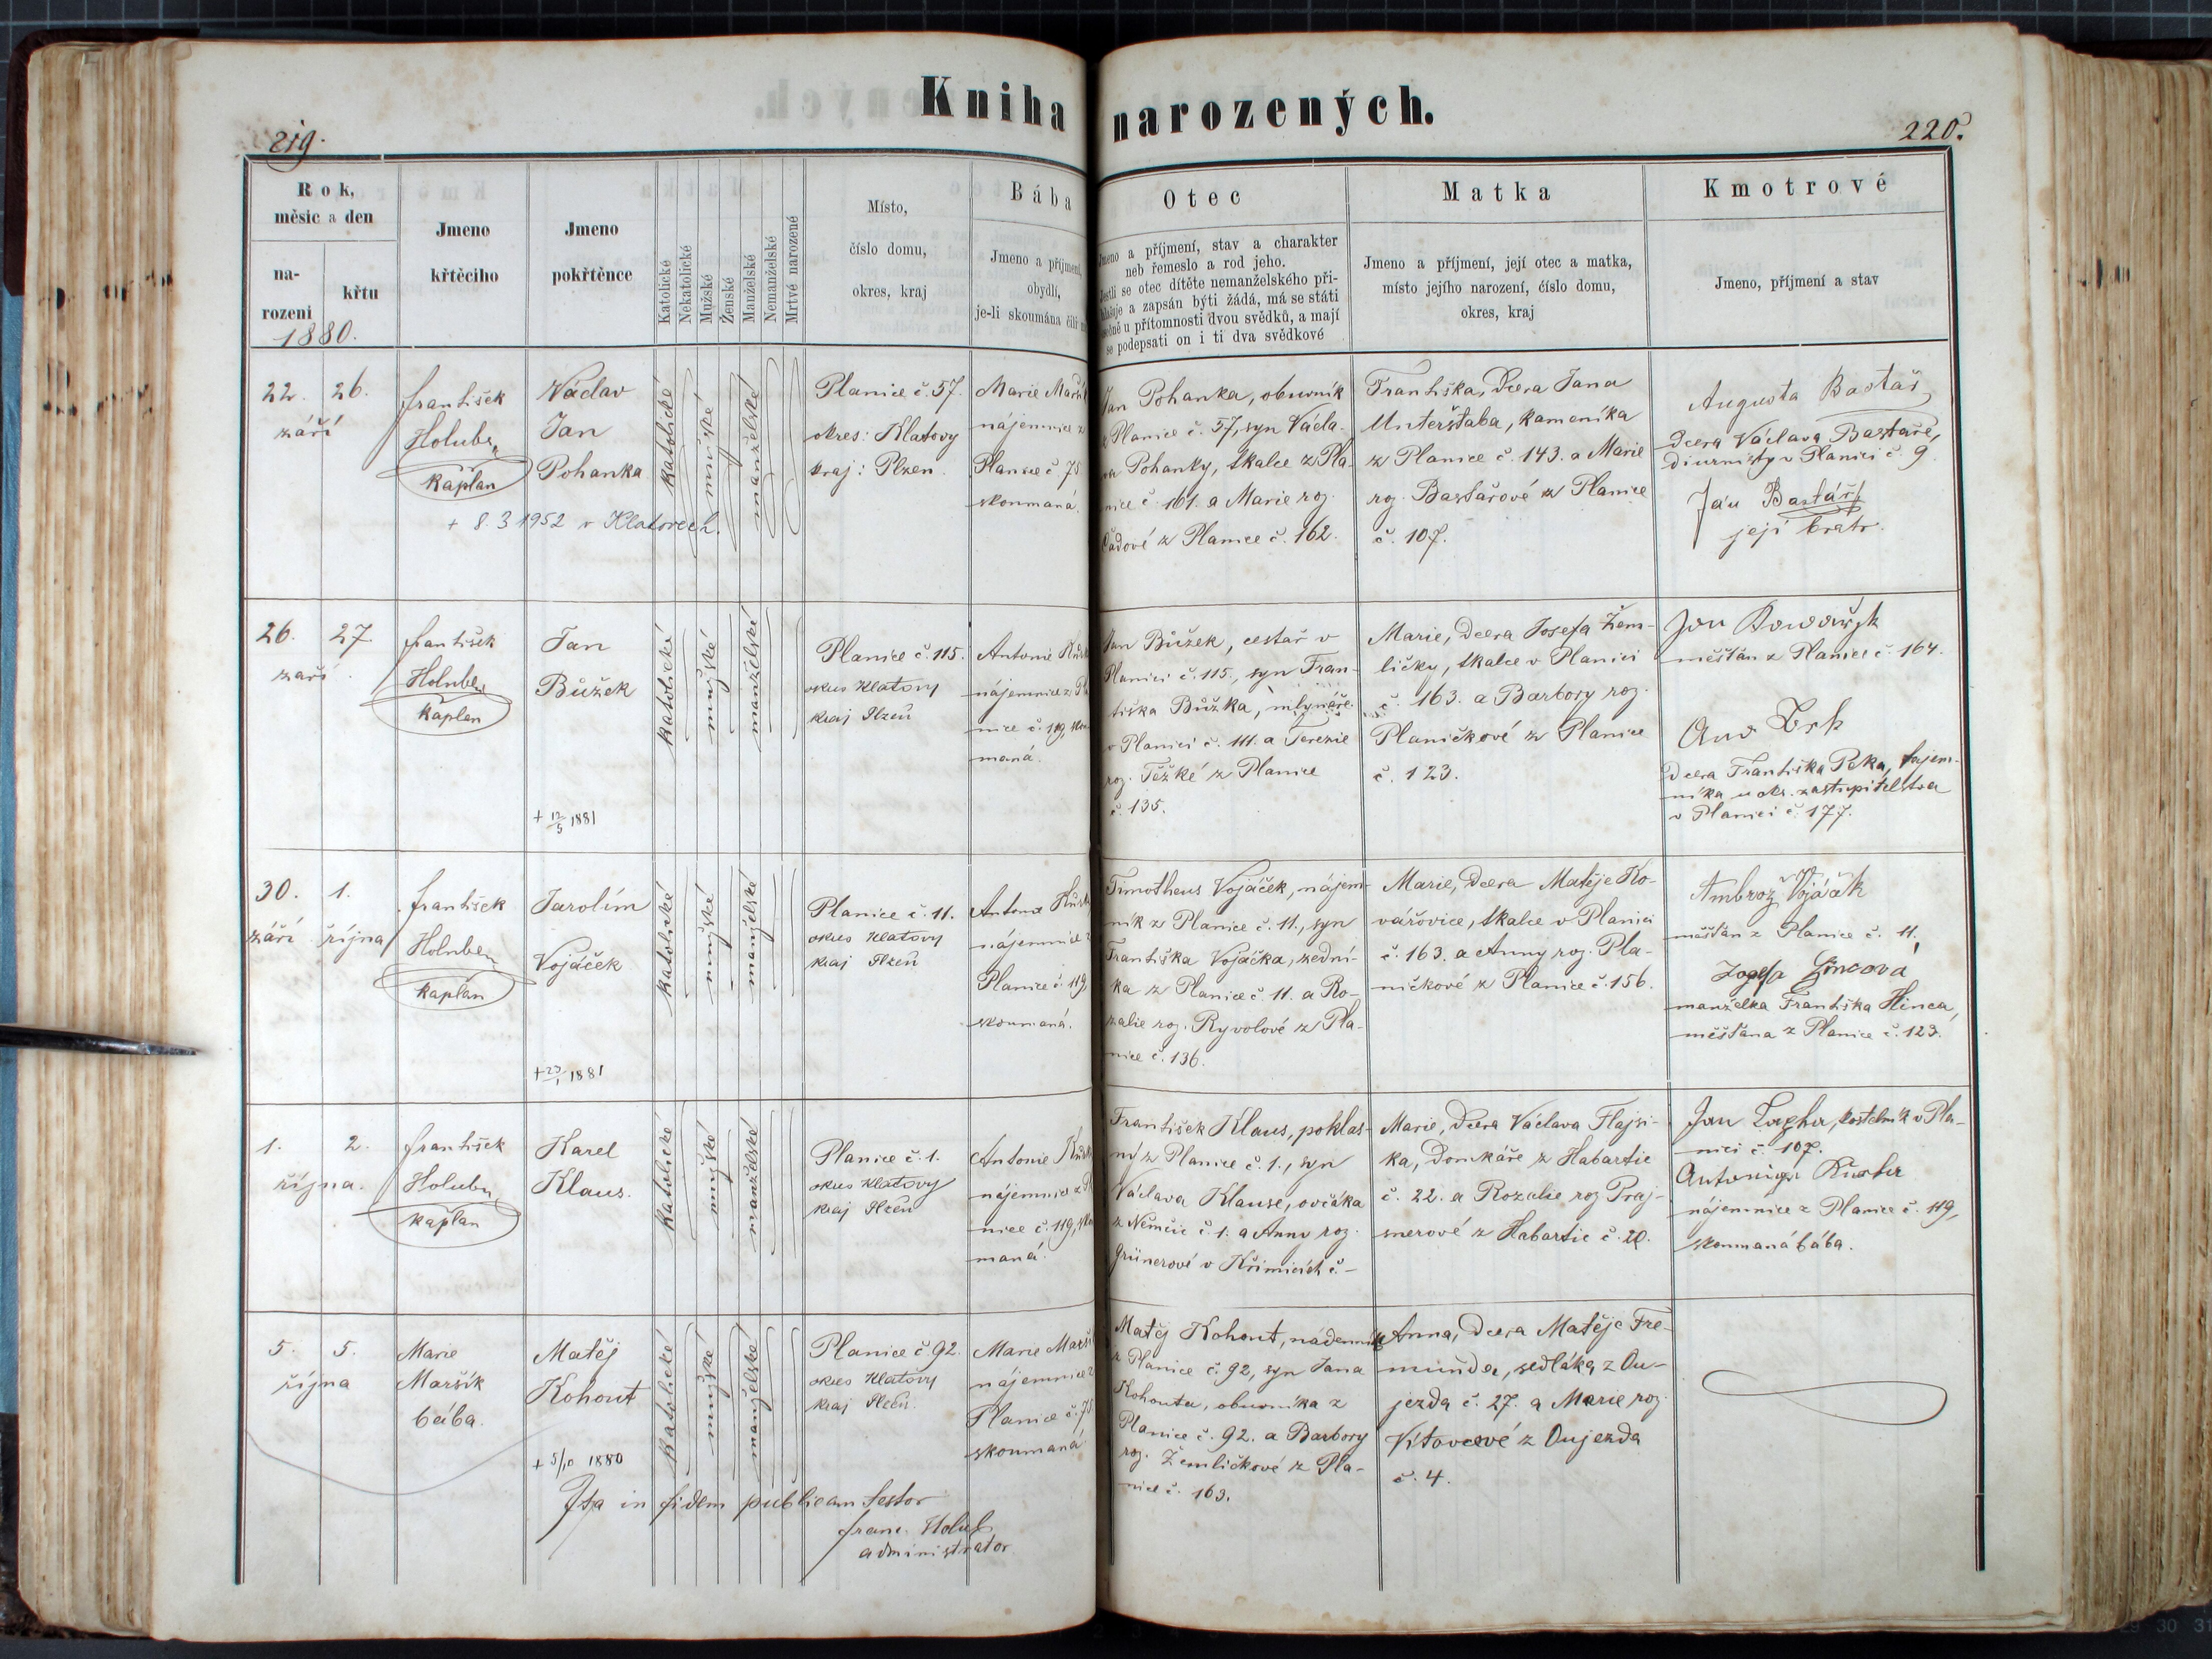 Kniha narozených.
219.
220.
Rok,
měsíc a den
na-
rozeni
křtu
1880.
Jmeno
křtěcího
Jmeno
pokřtěnce
Katolické
Nekatolické
Mužské
Ženské
Manželské
Nemanželské
Mrtvé narozené
Místo,
číslo domu,
okres, kraj
Bába
Jmeno a příjmení,
obydlí,
je-li skoumána čili
Otec
Jmeno a příjmení, stav a charakter
neb řemeslo a rod jeho.
Jestli se otec dítěte nemanželského při-
hlašuje a zapsán býti žádá, má se státi
u přítomnosti dvou svědků, a mají
se podepsati on i ti dva svědkové
Matka
Jmeno a příjmení, její otec a matka,
místo jejího narození, číslo domu,
okres, kraj
Kmotrové
Jmeno, příjmení a stav
22. 26.
září
František
Holub
kaplan
Václav
Jan
Pohanka
+ 8.3 1952 v Klatovech.
katolické
mužské
manželské
Planice č. 57.
okres: Klatovy
kraj: Plzen
Marie
nájemnice z
Planice č. 75
skoumaná.
Jan Pohanka, obuvník
z Planice č. 57, syn Václa-
va Pohanky, tkalce z Pla-
nice č. 161. a Marie roz.
Čadové z Planice č. 162.
Františka, dcera Jana
Unterštaba, kameníka
z Planice č. 143. a Marie
roz. Bastařové z Planice
č. 107.
Augusta Bastař
dcera Václava Bastaře,
diurnisty v Planici č. 9
Jan Bastář
její bratr.
26. 27.
září
František
Holub
kaplan
Jan
Bůžek
+ 12/5 1881
katolické
mužské
manželské
Planice č. 115.
okres Klatovy
kraj Plzeň
Antonie
nájemnice z Pla
nice č. 119, skou
maná.
Jan Bůžek, cestař v
Planici č. 115., syn Fran-
tiška Bůžka, mlynáře
v Planici č. 111. a Terezie
roz. Těžké z Planice
č. 135.
Marie, dcera Josefa Žem-
ličky, tkalce v Planici
č. 163. a Barbory roz.
Planičkové z Planice
č. 123.
Jan
měšťan z Planice č. 164.
dcera Františka Peka, tajem-
níka u okr. zastupitelstva
v Planici č. 177.
30. 1.
září října
František
Holub
kaplan
Jarolím
Vojáček
+ 23/1 1881
katolické
mužské
manželské
Planice č. 11.
okres Klatovy
kraj Plzeň
Antonie
nájemnice z
Planice č. 119,
skoumaná.
Timotheus Vojáček, nájem-
ník z Planice č. 11., syn
Františka Vojáčka, zední-
ka z Planice č. 11. a Ro-
zalie roz. Ryvolové z Pla-
nice č. 136.
Marie, dcera Matěje Ko-
vářovice, tkalce v Planici
č. 163. a Anny roz. Pla-
ničkové z Planice č. 156.
Ambrož Vojáčk
měšťan z Planice č. 11.
manželka Františka Hinca,
měšťana z Planice č. 123.
1. 2.
října.
František
Holub
kaplan
Karel
Klaus.
katolické
mužské
manželské
Planice č. 1.
okres Klatovy
kraj Plzeň
Antonie
nájemnice z Pla
nice č. 119, skou
maná.
František Klaus, poklas-
ný z Planice č. 1., syn
Václava Klause, ovčáka
z Němčic č. 1. a Anny roz.
Grünerové v Křimicích č. –
Marie, dcera Václava Flajsi-
ka, domkáře z Habartic
č. 22. a Rozalie roz. Praj-
snerové z Habartic č. 20.
Jan kostelník v Pla-
nici č. 107.
nájemnice z Planice č. 119,
skoumaná bába.
5. 5.
října
Marie
Maršík
bába.
Matěj
Kohout
+ 5/10 1880
katolické
mužské
manželské
Planice č. 92.
okres Klatovy
kraj Plzeň.
Marie
nájemnice z
Planice č. 75
skoumaná
Matěj Kohout, nádenník
z Planice č. 92, syn Jana
Kohouta, obuvníka z
Planice č. 92. a Barbory
roz. Žemličkové z Pla-
nice č. 163.
Anna, dcera Matěje Fre-
munda, sedláka z Ou-
jezda č. 27. a Marie roz.
Vítovcové z Oujezda
č. 4.
Ita in fidem publicam testor
Franc. Holub
administrator.